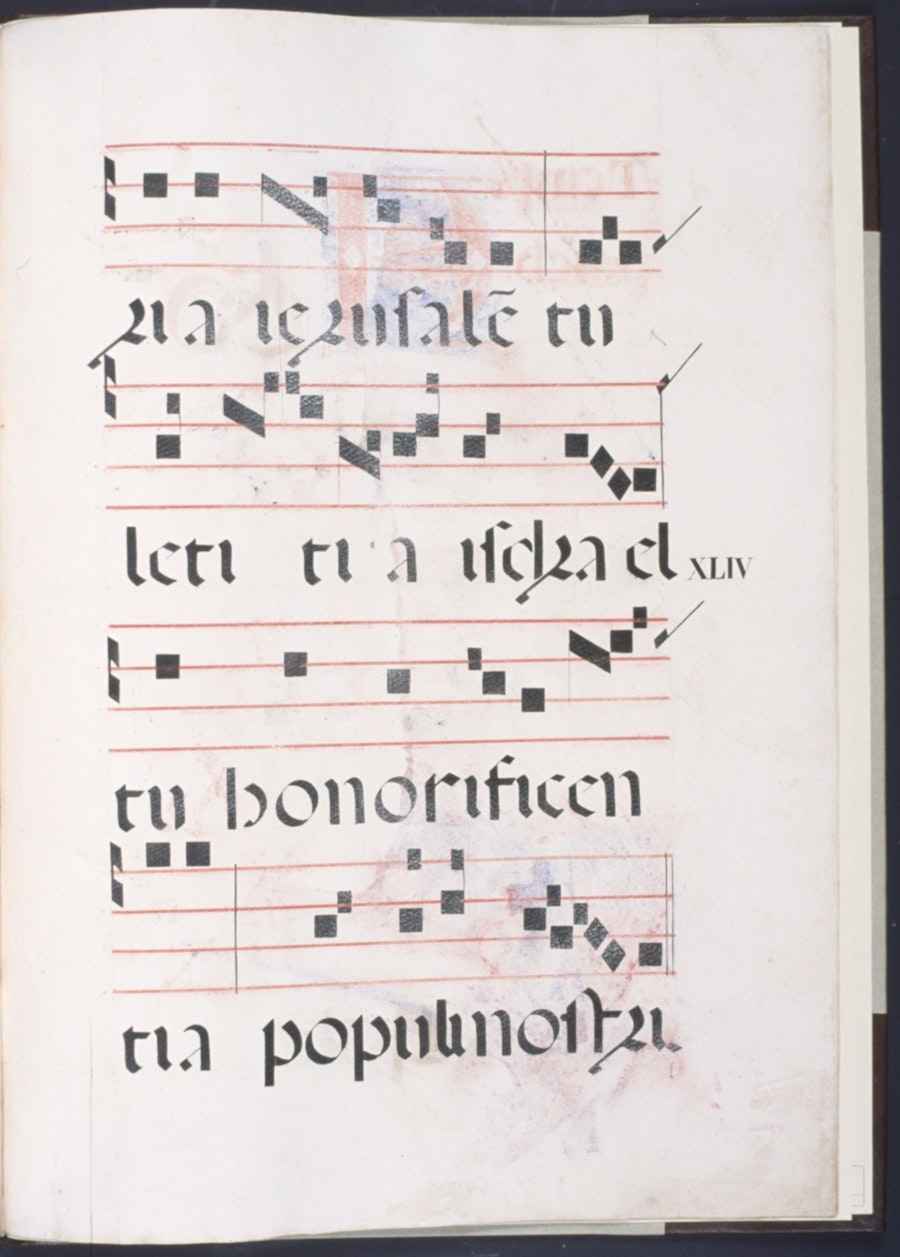 ria ierusalē tu
leti ti a ischra el
XLIV
tu honorificen
tia populi nostri